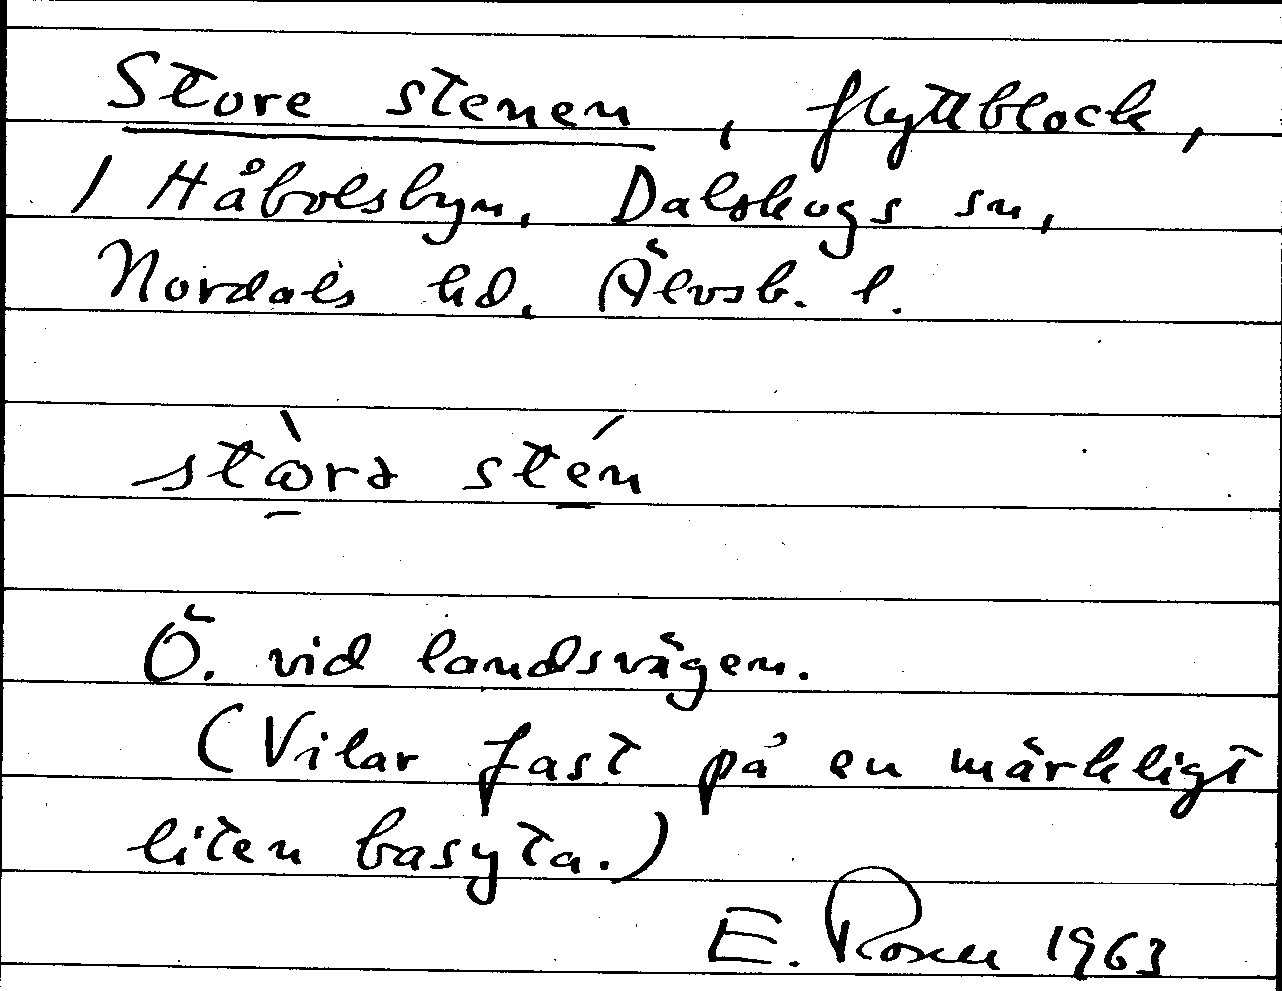 Store stenen, flyttblock,
/ Håbolsbyn, Dalskogs sn,
Nordals hd. Älvsb. l.
stòrə stén
Ö. vid landsvägen.
(Vilar fast på en märkligt
liten basyta.)
E. 1963